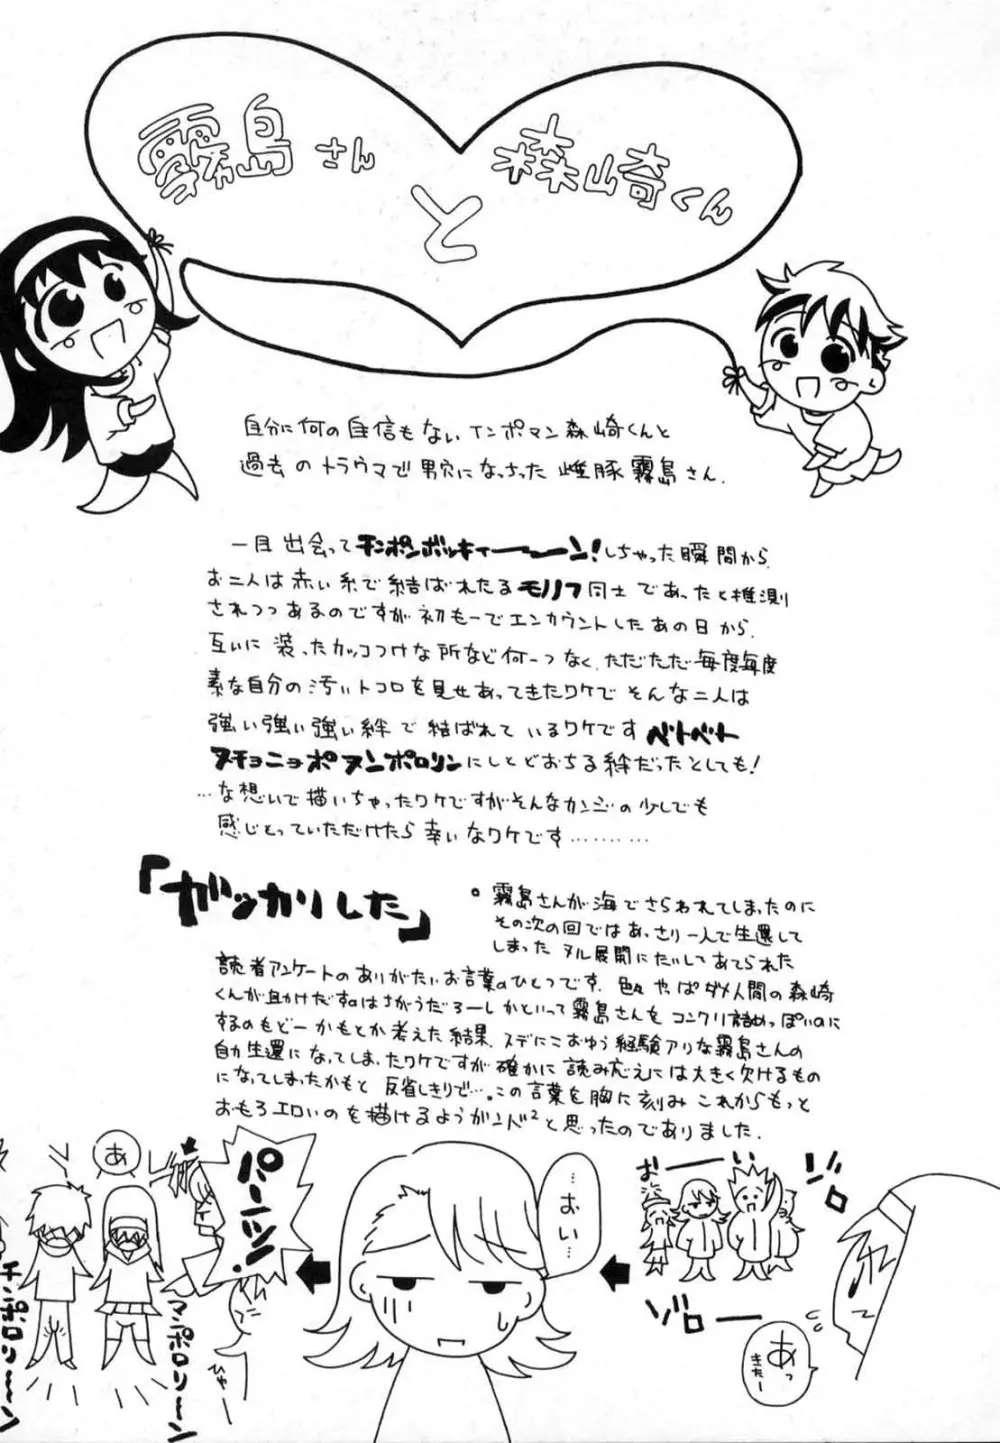 霧島さん
と
森崎くん
自分に何の自信もないインポマン森崎くんと
過去のトラウマで男穴になっちった雌豚霧島さん.
一目出会ってチンポンボッキィーーーン!しちゃった瞬間から
お二人は赤い糸で結ばれたるモノノフ同士であったと推測
されつつあるのですが初もーでエンカウントしたあの日から
互いに装ったカッコつけな所など何一つなく、ただただ毎度毎度
素な自分の汚いトコロを見せあってきたワケでそんな二人は
強い強い強い絆で結ばれているワケですベトベト
ヌチョニョポヌンポロリンにしとどおちる絆だったとしても!
…な想いで描いちゃったワケですがそんなカンジの少しでも
感じとっていただけたら幸いなワケです………
「ガッカリした」
。霧島さんが海でさらわれてしまったのに
その次の回ではあっさり一人で生還して
しまったヌル展開にたいしてあてられた
読者アンケートのありがたいお言葉のひとつです. 色々やっぱダメ人間の森崎
くんが助けだすのはちがうだろーしかといって霧島さんをコンクリ詰めっぽいのに
するのもどーかもとか考えた結果、スデにこおゆう経験アリな霧島さんの
自力生還になってしまったワケですが確かに読み応えには大きく欠けるもの
になってしまったかもと反省しきりで…。この言葉を胸に刻みこれからもっと
おもろエロいのを描けるようがンバ²と思ったのでありました.
おーい
ゾロ
ゾロー
あっ
きたー
…おい…
パーンッ!
あ
ひゃー
マンポロリーン
チンポロリーン